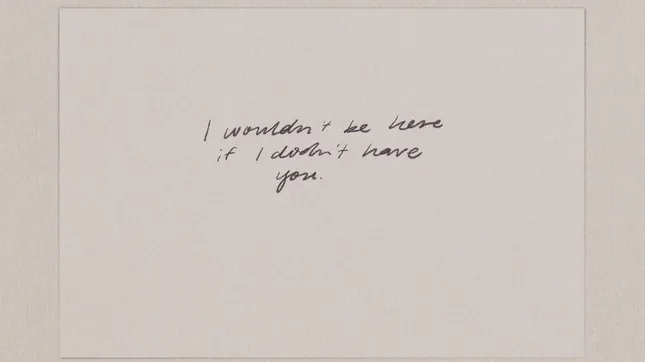 I wouldn't be here
if I didn't have
you.